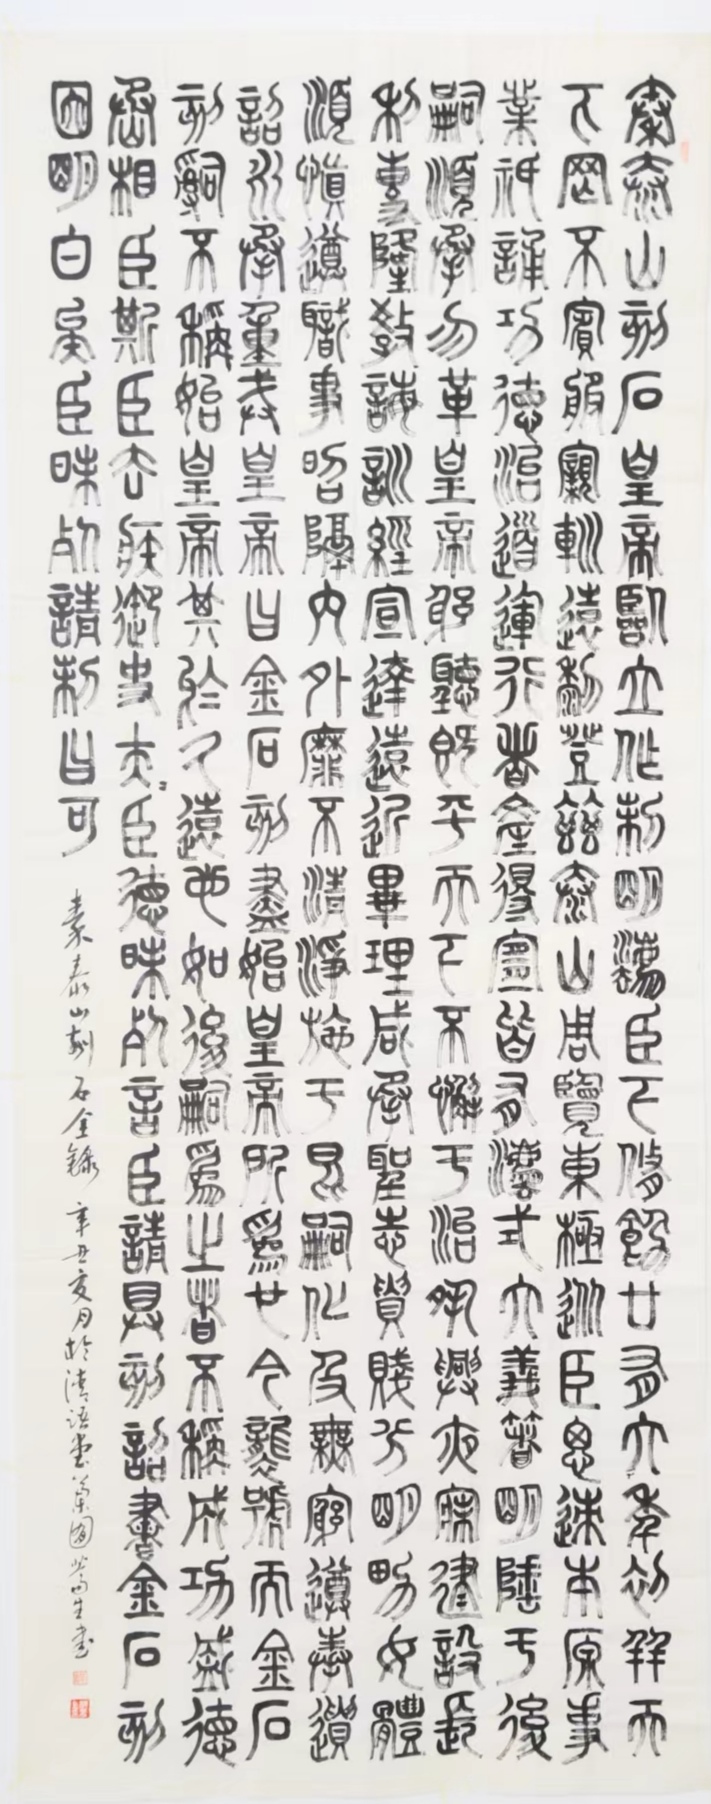 秦泰山刻石皇帝臨立作制明灋臣下脩飭廿有六年初并天
下罔不賓服寴軔遠黎登茲泰山周覽東極從臣思速本原事
業祗誦功德治道運行者產得宜皆有灋式大義箸明陲于後
嗣順承勿革皇帝躬聽既平天下不懈于治夙興夜寐建設長
利專隆教誨訓經宣達遠近畢理咸承聖志貴賤分明男女體
順慎遵職事昭隔內外靡不清淨施于昆嗣化及無窮遵奉遺
詔永承重戒皇帝曰金石刻盡始皇帝所爲也今襲號而金石
刻辭不稱始皇帝其於久遠也如後嗣爲之者不稱成功盛德
丞相臣斯臣去疾御史夫〻臣德昧死言臣請具刻詔書金石刻
因明白矣臣昧死請制曰可
秦泰山刻石全錄 辛丑夏月於清語堂 生書